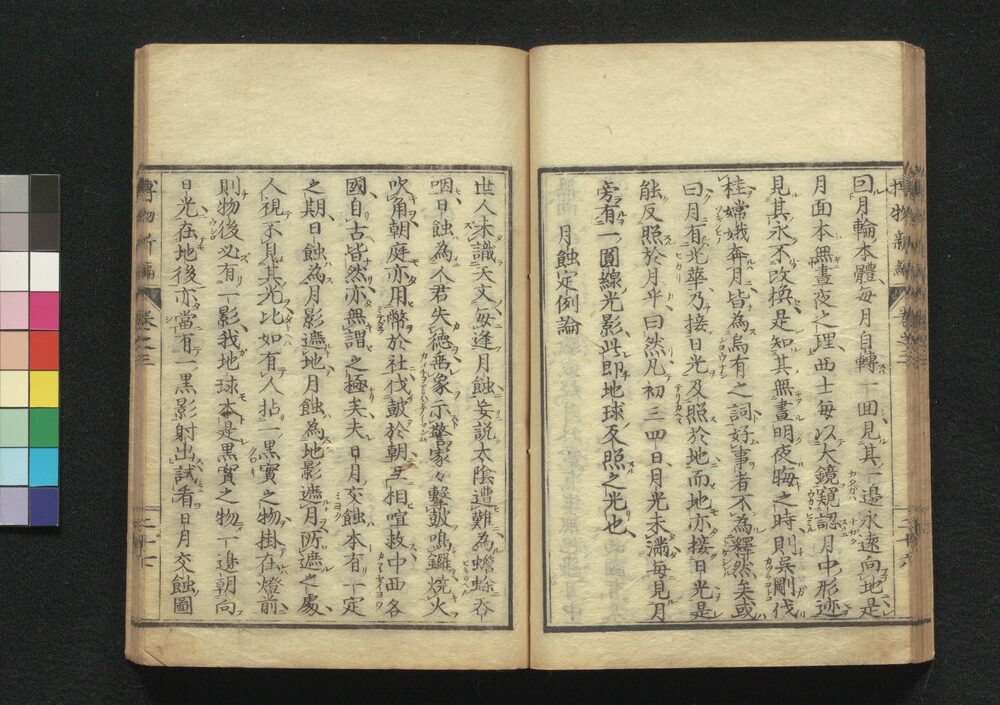 回月輪本體每月自轉一回見其一邉永遠向地是
月面本無晝夜之理西士每以大鏡窺認月中形迹
見其永不改換是知其無晝明夜晦之時則吳剛伐
桂嫦娥奔月皆為烏有之詞好事者不為釋然矣或
曰月有光華乃接日光反照於地而地亦接日光是
能反照於月乎曰然凡初三四日月光未滿每見月
旁有一圓線光影此即地球反照之光也
月蝕定例論
世人未識天文每逢月蝕妄説太陰遭難為蟾蜍吞
咽日蝕為人君失德垂象示警家々擊皷鳴鑼燒火
吹角朝庭亦用幣於社伐皷於朝互相喧救中西各
國自古皆然亦無謂之極矣夫日月交蝕本有一定
之期日蝕為月影遮地月蝕為地影遮月所遮之處
人視不見其光比如有人拈一黒實之物掛在燈前
則物後必有一影我地球本是黒實之物一邉朝向
日光在地後亦當有一黒影射出試看日月交蝕圖
博物新編 卷之三 二十六
博物新編 卷之三 二十七